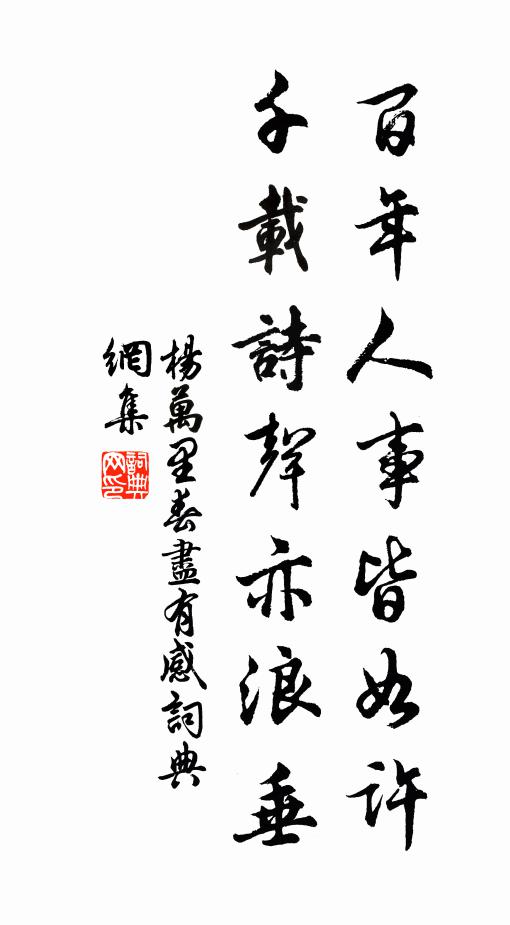 百年人事皆如許
千載詩聲亦浪垂
楊萬里春盡有感詞典
網集
詞典
网印